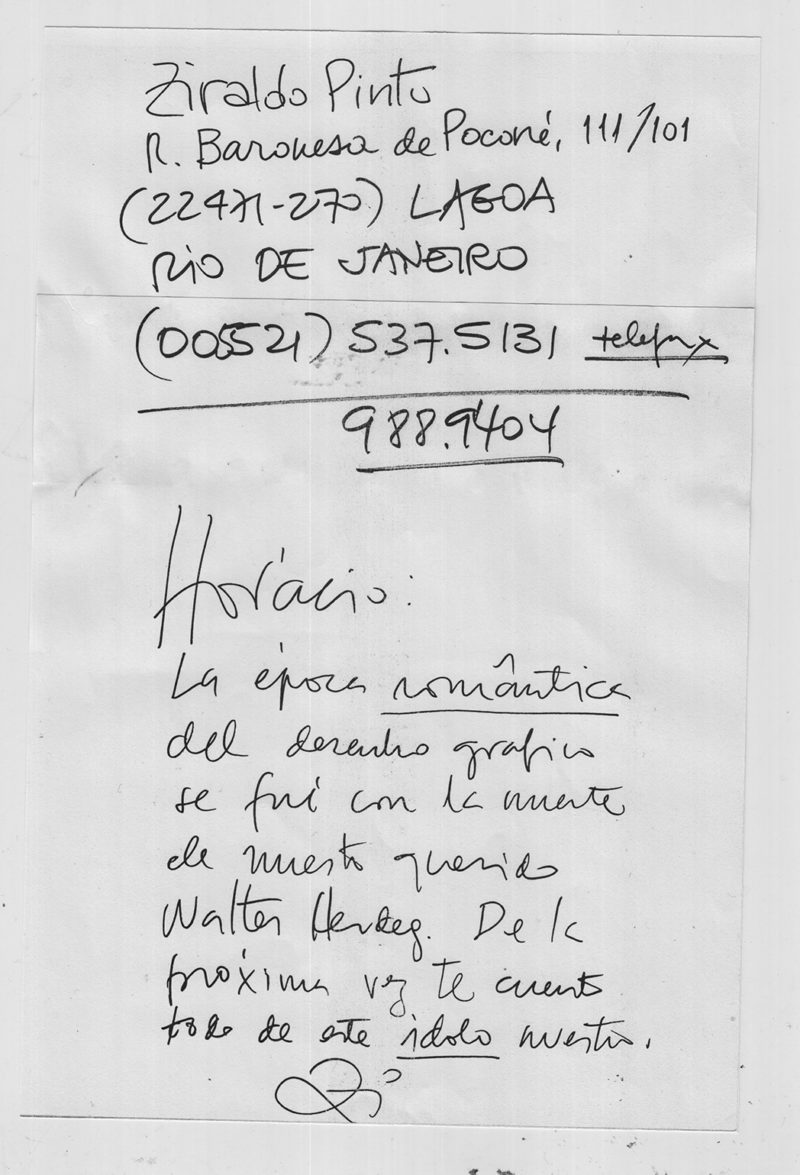 Ziraldo Pinto
R. Baronesa de Poconé, 111/101
(22471-270) LAGOA
RIO DE JANEIRO
(005521) 537.5131 telefax
988.9404
Horácio:
La época romântica
del desenho grafico
se fuí con la muerte
de nuesto querido
Walter Herdeg. De la
próxima vez te cuento
todo de este idolo nuestro.